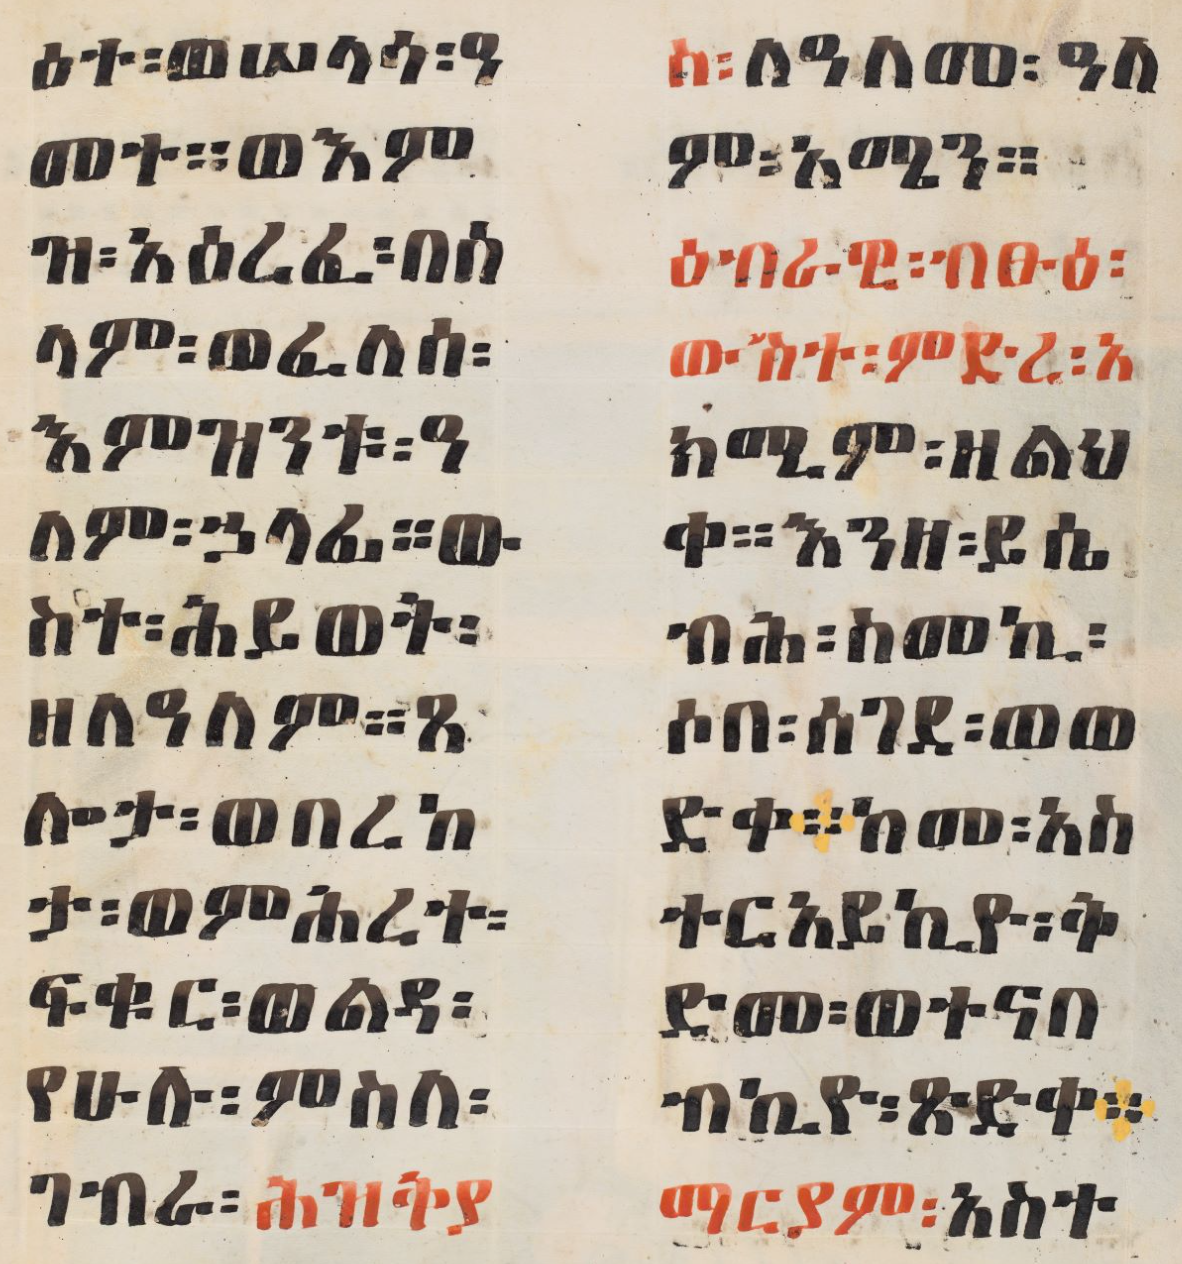 ዕተ፡ወሠላሳ፡ዓ
መተ።ወእም
ዝ፡አዕረፈ፡በሰ
ላም፡ወፈለሰ፡
እምዝንቱ፡ዓ
ለም፡ኃላፊ።ው
ስተ፡ሕይወት፡
ዘለዓለም።ጸ
ሎታ፡ወበረከ
ታ፡ወምሕረተ፡
ፍቁር፡ወልዳ፡
የሁሉ፡ምስለ፡
ገብራ፡ሕዝቅያ
ስ፡ለዓለመ፡ዓለ
ም፡አሜን።
ዕብራዊ፡ብፁዕ፡
ውስተ፡ምድረ፡አ
ክሚም፡ዘልህ
ቀ።እንዘ፡ይሴ
ብሕ፡ከመኪ፡
ሶበ፡ሰገደ፡ወወ
ድቀ።ከመ፡አስ
ተርአይኪዮ፡ቅ
ድመ፡ወተናበ
ብኪዮ፡ጽድቀ።
ማርያም፡አስተ